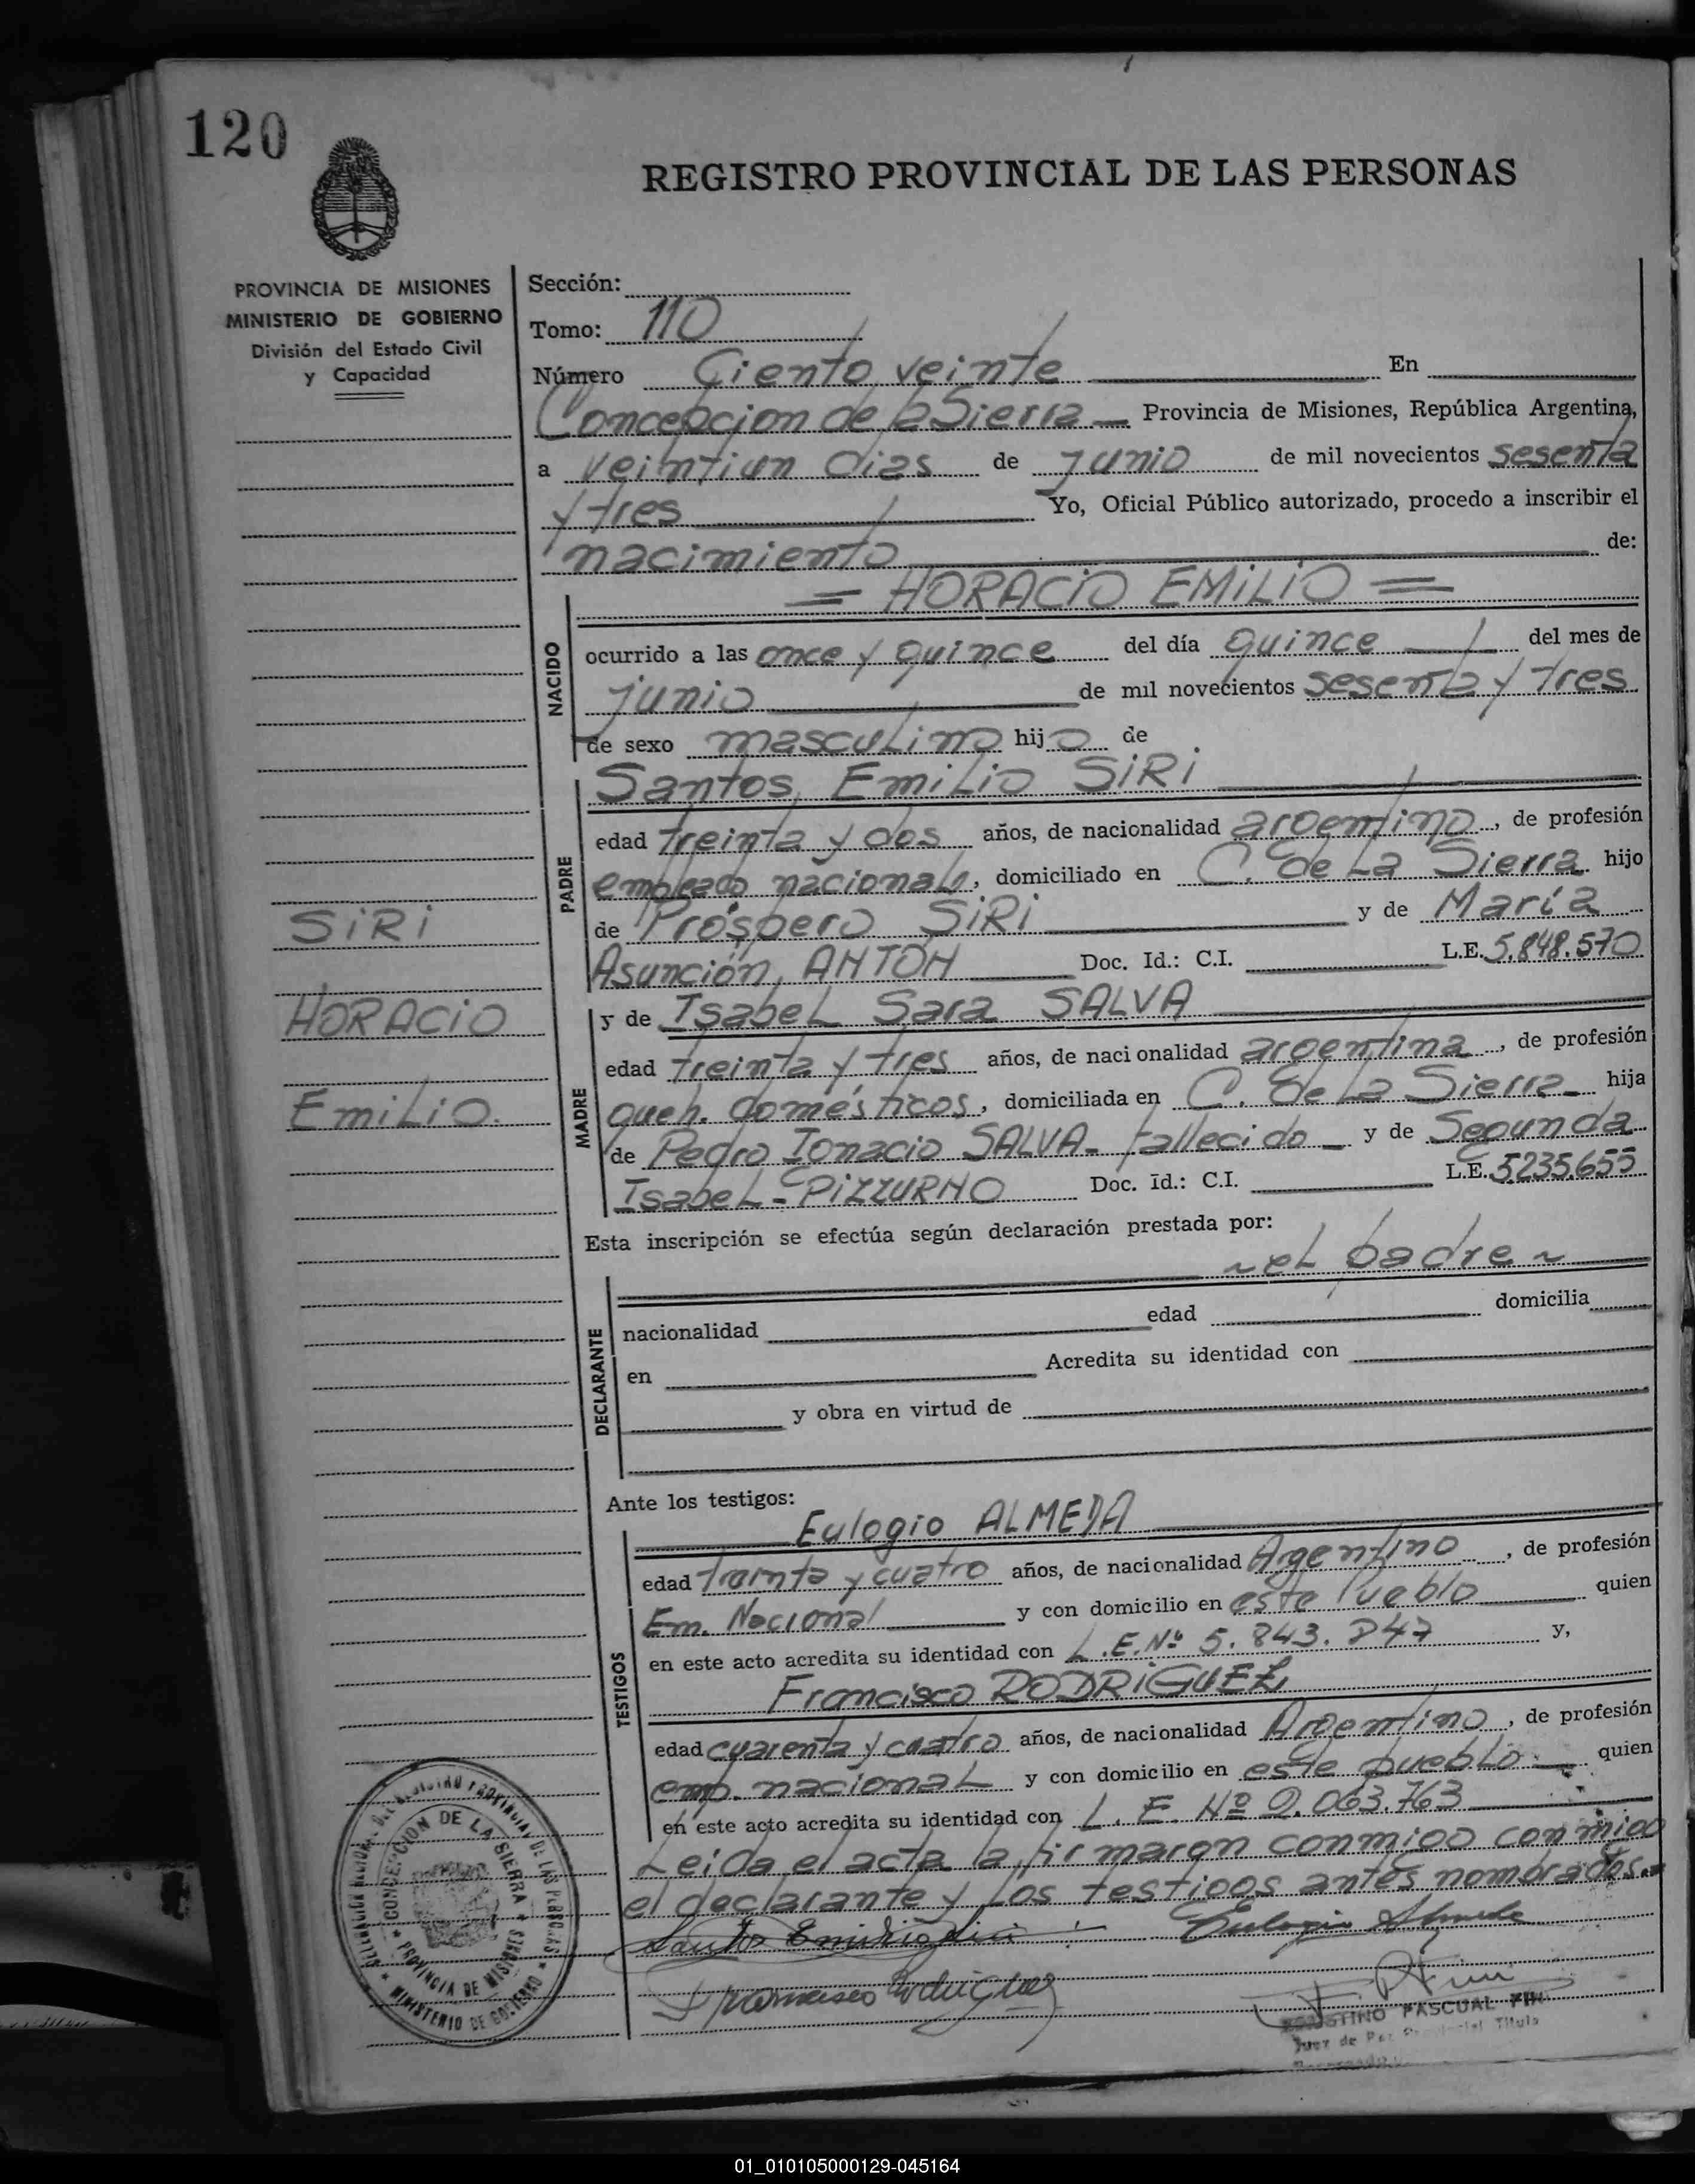 120
REGISTRO PROVINCIAL DE LAS PERSONAS
PROVINCIA DE MISIONES
MINISTERIO DE GOBIERNO
División del Estado Civil
y Capacidad
Sección:
Tomo: 110
Número Ciento veinte En
Concepcion de la Sierra Provincia de Misiones, República Argentina,
a veintiun dias de junio de mil novecientos sesenta
y tres Yo, Oficial Público autorizado, procedo a inscribir el
nacimiento de:
= HORACIO EMILIO =
NACIDO
ocurrido a las once y quince del día quince del mes de
junio de mil novecientos sesenta y tres
de sexo masculino hijo de
Santos Emilio SIRI
PADRE
edad treinta y dos años, de nacionalidad argentino, de profesión
empleado nacional, domiciliado en C. de La Sierra hijo
de Próspero SIRI y de María
Asunción ANTON Doc. Id.: C.I. L.E. 5.848.570
SIRI
HORACIO
Emilio.
MADRE
y de Isabel Sara SALVA
edad treinta y tres años, de nacionalidad argentina, de profesión
queh. domésticos, domiciliada en C. de La Sierra hija
de Pedro Ignacio SALVA- fallecido y de Segunda
Isabel - PIZZURNO Doc. Id.: C.I. L.E. 5235.655
Esta inscripción se efectúa según declaración prestada por:
~ el padre ~
DECLARANTE
nacionalidad edad domicilia
en Acredita su identidad con
y obra en virtud de
Ante los testigos:
TESTIGOS
Eulogio ALMEDA
edad treinta y cuatro años, de nacionalidad Argentino, de profesión
Em. Nacional y con domicilio en este Pueblo quien
en este acto acredita su identidad con L.E.Nº 5.843.847 y,
Francisco RODRIGUEZ
edad cuarenta y cuatro años, de nacionalidad Argentino, de profesión
emp. nacional y con domicilio en este pueblo. quien
en este acto acredita su identidad con L. E. Nº 2.063.763
Leida el acta la firmaron conmigo conmigo
el declarante y los testigos antes nombrados.
Santos Emilio Siri Eulogio Almeda
Francisco Rodriguez
PASCUAL
Juez de Paz Titula
CONCEPCION DE LA SIERRA
PROVINCIA DE MISIONES
MINISTERIO DE GOBIERNO
01_010105000129-045164